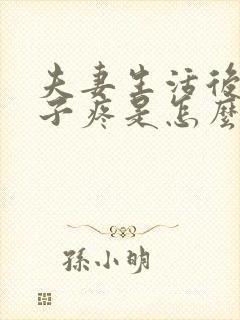 夫妻生活後
子疼是怎麼
孫小明